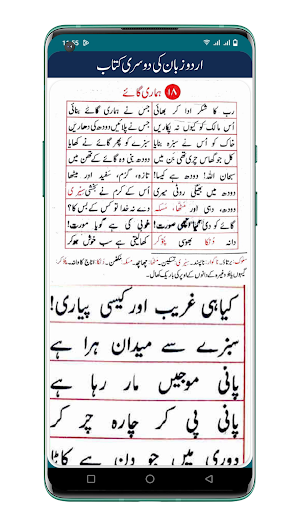 اردو زبان کی دوسری کتاب
۱۸ ہماری گائے
رب کا شکر ادا کر بھائی جس نے ہماری گائے بنائی
اُس مالک کو کیوں نہ پکاریں جس نے پلائیں دودھ کی دھاریں
خاک کو اُس نے سبزہ بنایا سبزے کو پھر گائے نے کھایا
کل جو گھاس چری تھی بن میں دودھ بنی وہ گائے کے تھن میں
سبحان اللہ! دودھ ہے کیسا! تازہ، گرم، سفید اور میٹھا
دودھ میں بھیگی روٹی میری اُس کے کرم نے بخشی سیری
دودھ، دہی اور مٹھا، مسکہ دے نہ خدا تو کس کے بس کا؟
گائے کو دی کیا اچھی صورت! خوبی کی ہے گویا مورت!
دانہ دُنکا بھوسی چوکر کھا لیتی ہے سب خوش ہو کر
کیا ہی غریب اور کیسی پیاری!
سبزے سے میدان ہرا ہے
پانی موجیں مار رہا ہے
پانی پی کر چارہ چر کر
دوری میں جو دن ہے کاٹا